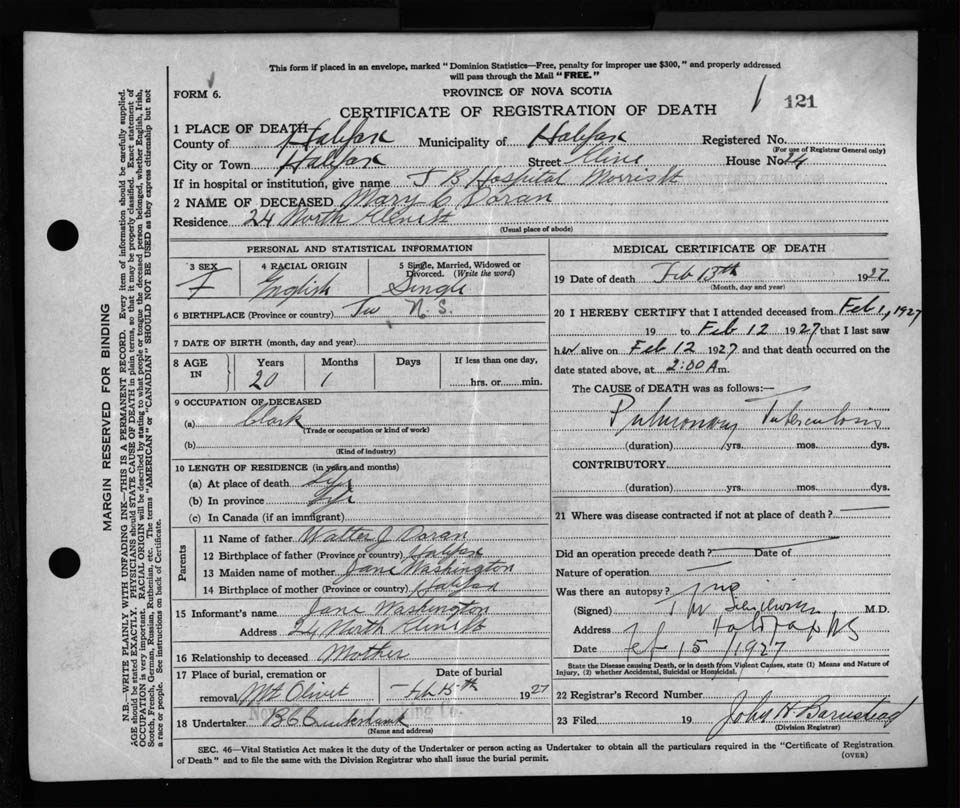 This form if placed in an envelope, marked "Dominion Statistics—Free, penalty for improper use $300," and properly addressed
will pass through the Mail "FREE."
FORM 6.
PROVINCE OF NOVA SCOTIA
CERTIFICATE OF REGISTRATION OF DEATH
121
1 PLACE OF DEATH
County of Halifax Municipality of Halifax Registered No.
(For use of Registrar General only)
City or Town Halifax Street House No. 24
If in hospital or institution, give name T B Hospital Morris St
2 NAME OF DECEASED Mary C Doran
Residence 24 North
(Usual place of abode)
PERSONAL AND STATISTICAL INFORMATION
3 SEX 4 RACIAL ORIGIN 5 Single, Married, Widowed or Divorced. (Write the word)
F English Single
6 BIRTHPLACE (Province or country) N. S.
7 DATE OF BIRTH (month, day and year)
8 AGE IN Years Months Days If less than one day,
20 1 hrs. or min.
9 OCCUPATION OF DECEASED
(a) Clark
(Trade or occupation or kind of work)
(b)
(Kind of industry)
10 LENGTH OF RESIDENCE (in years and months)
(a) At place of death life
(b) In province life
(c) In Canada (if an immigrant)
Parents
11 Name of father Walter J Doran
12 Birthplace of father (Province or country) Halifax
13 Maiden name of mother Jane Washington
14 Birthplace of mother (Province or country) Halifax
15 Informant's name Jane Washington
Address 24 North
16 Relationship to deceased Mother
17 Place of burial, cremation or removal Mt Olivet
Date of burial 1927
18 Undertaker
(Name and address)
MEDICAL CERTIFICATE OF DEATH
19 Date of death Feb 13th 1927
(Month, day and year)
20 I HEREBY CERTIFY that I attended deceased from Feb 1, 1927
19 to Feb 12 1927 that I last saw
her alive on Feb 12 1927 and that death occurred on the
date stated above, at 2:00 A m.
The CAUSE of DEATH was as follows:—
Pulmonary Tuberculosis
(duration) yrs. mos. dys.
CONTRIBUTORY
(duration) yrs. mos. dys.
21 Where was disease contracted if not at place of death?
Did an operation precede death? Date of
Nature of operation
Was there an autopsy? no
(Signed) M.D.
Address Halifax NS
Date Feb 15 / 1927
State the Disease causing Death, or in death from Violent Causes, state (1) Means and Nature of
Injury, (2) whether Accidental, Suicidal or Homicidal.
22 Registrar's Record Number
23 Filed 19 John H Barnstead
(Division Registrar)
SEC. 46—Vital Statistics Act makes it the duty of the Undertaker or person acting as Undertaker to obtain all the particulars required in the "Certificate of Registration
of Death" and to file the same with the Division Registrar who shall issue the burial permit.
(OVER)
MARGIN RESERVED FOR BINDING
N.B.—WRITE PLAINLY WITH UNFADING INK—THIS IS A PERMANENT RECORD. Every item of information should be carefully supplied.
AGE should be stated EXACTLY. PHYSICIANS should STATE CAUSE OF DEATH in plain terms, so that it may be properly classified. Exact statement of
OCCUPATION is very important. RACIAL ORIGIN will be described by stating to what people or tongue the deceased person belonged, whether English, Irish,
Scotch, French, German, Russian, Ruthenian, etc. The terms "AMERICAN" or "CANADIAN" SHOULD NOT BE USED as they express citizenship but not
a race or people. See instructions on back of Certificate.